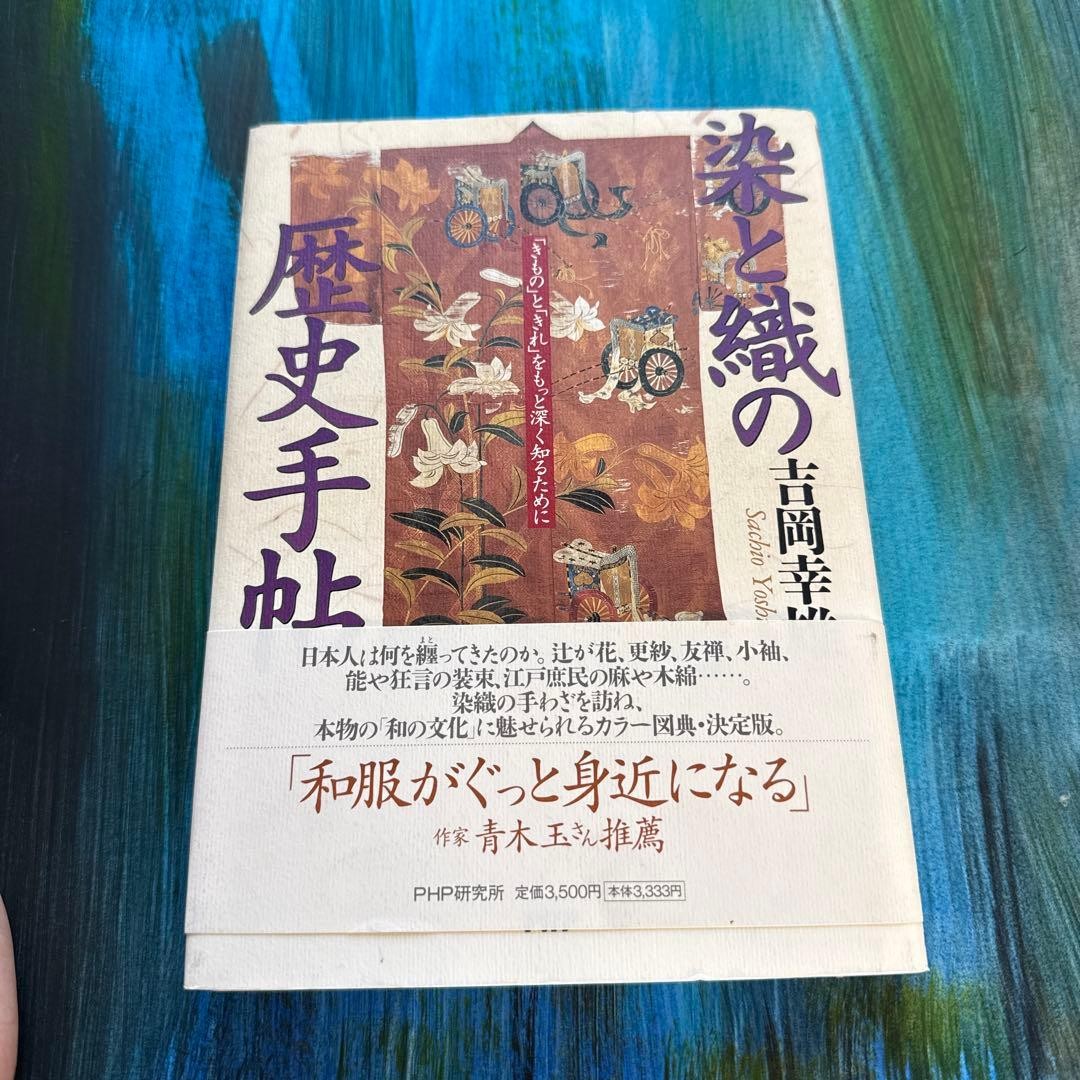 染と織の
歴史手帖
「きもの」と「きれ」をもっと深く知るために
吉岡幸
Sachio
日本人は何を纏ってきたのか。辻が花、更紗、友禅、小袖、
まと
能や狂言の装束、江戸庶民の麻や木綿……。
染織の手わざを訪ね、
本物の「和の文化」に魅せられるカラー図典・決定版。
「和服がぐっと身近になる」
作家 青木玉さん推薦
PHP研究所 定価3,500円 本体3,333円